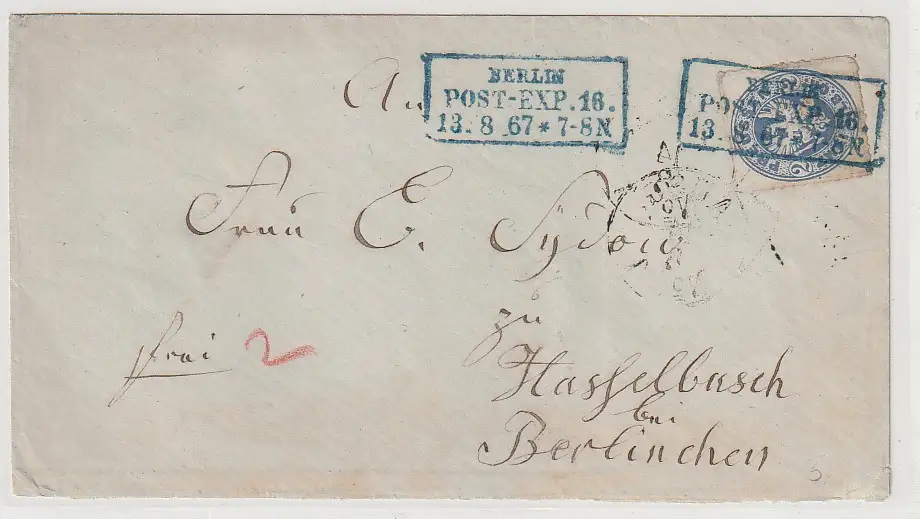 An
BERLIN
POST-EXP. 16.
13. 8 67 * 7-8 N
BERLIN
POST-EXP. 16.
13. 8 67 * 7-8 N
Frau E. Sydow
zu
frei 2
Hasselbusch
bei
Berlinchen